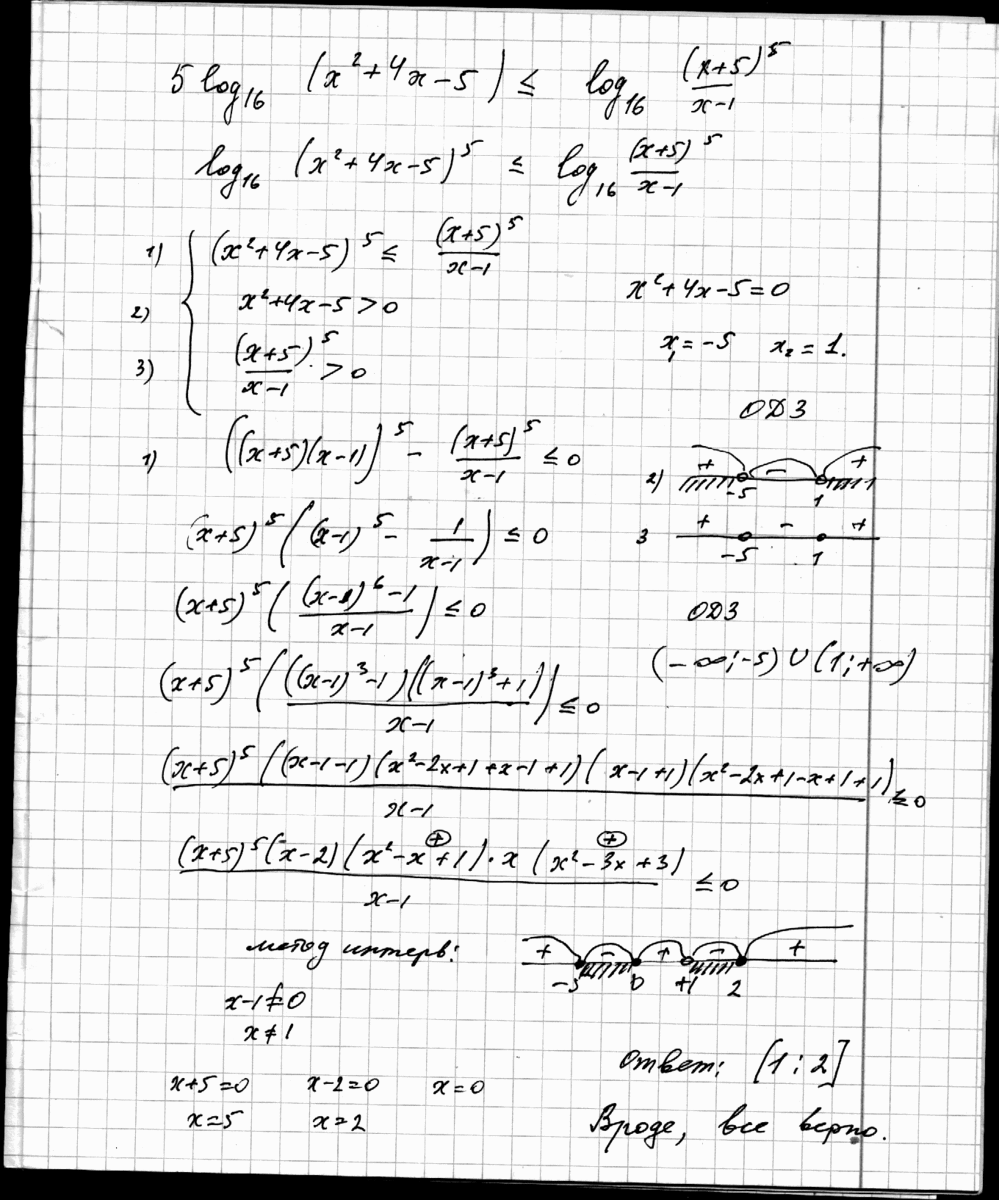 5 log₁₆ (x²+4x-5) ≤ log₁₆ (x+5)⁵/(x-1)
log₁₆ (x²+4x-5)⁵ ≤ log₁₆ (x+5)⁵/(x-1)
1) { (x²+4x-5)⁵ ≤ (x+5)⁵/(x-1)
2) x²+4x-5>0
3) (x+5)⁵/(x-1) > 0
x²+4x-5=0
x₁=-5 x₂=1.
ОДЗ
1) ((x+5)(x-1))⁵ - (x+5)⁵/(x-1) ≤ 0
2) + - +
-5 1
(x+5)⁵((x-1)⁵ - 1/(x-1)) ≤ 0
3 + - +
-5 1
(x+5)⁵(((x-1)⁶-1)/(x-1)) ≤ 0
ОДЗ
(-∞;-5)∪(1;+∞)
(x+5)⁵(((x-1)³-1)((x-1)³+1)/(x-1)) ≤ 0
(x+5)⁵((x-1-1)(x²-2x+1+x-1+1)(x-1+1)(x²-2x+1-x+1+1)/(x-1) ≤ 0
(x+5)⁵(x-2)(x²-x+1)·x(x²-3x+3)/(x-1) ≤ 0
+ +
метод интерв:
+ - + - +
-5 0 +1 2
x-1≠0
x≠1
Ответ: [1;2]
x+5=0 x-2=0 x=0
x=5 x=2
Вроде, все верно.